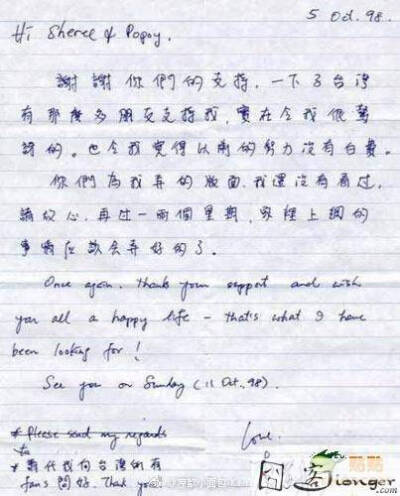 5 Oct. 98.
Hi Sheree & Popoy,
謝謝你們的支持，一下子台灣
有那麼多朋友支持我，實在令我很驚
訝的。也令我覺得以前的努力沒有白費。
你們為我弄的版面，我還沒有看过，
請放心，再过一兩個星期，家裡上網的
事情应該会弄好的了。
Once again, thanks your support and wish
you all a happy life – that's what I have
been looking for!
See you on Sunday (11 Oct., 98).
* Please send my regards
to
* 請代我向台灣的有
fans 問好. Thank you
Love.
黏黏
客
Jionger.com